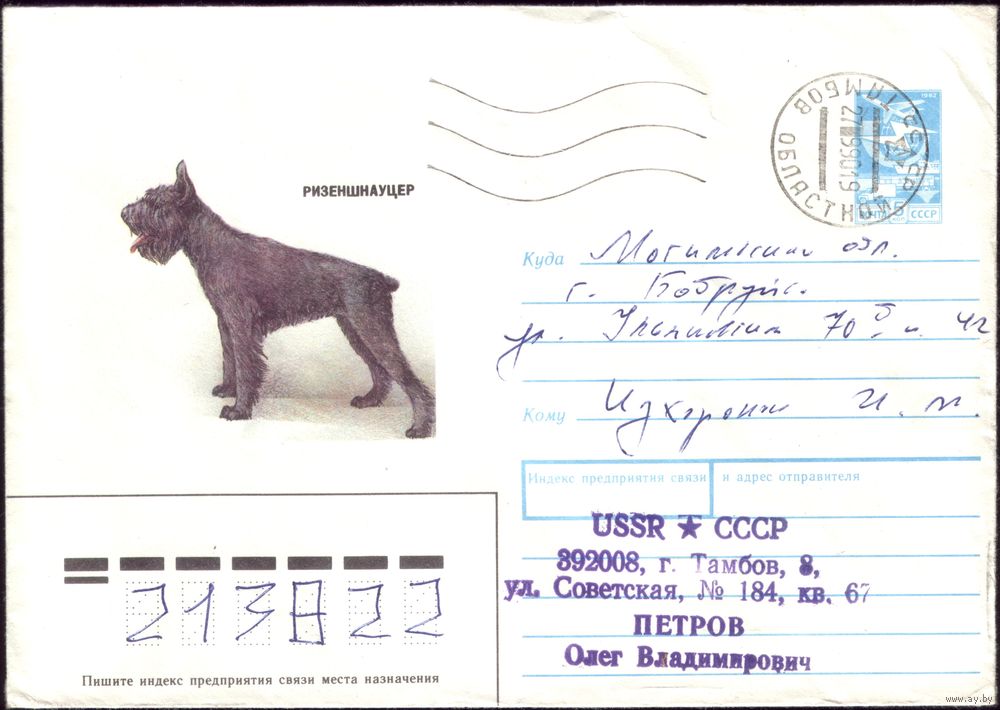 РИЗЕНШНАУЦЕР
ТАМБОВ ОБЛАСТНОЙ
1982
ПОЧТА 5 коп СССР
Куда Могилевская обл.
г. Бобруйск
ул. 70
Кому И. М.
Индекс предприятия связи и адрес отправителя
USSR ★ СССР
392008, г. Тамбов, 8,
ул. Советская, № 184, кв. 67
ПЕТРОВ
Олег Владимирович
213822
Пишите индекс предприятия связи места назначения
www.ay.by